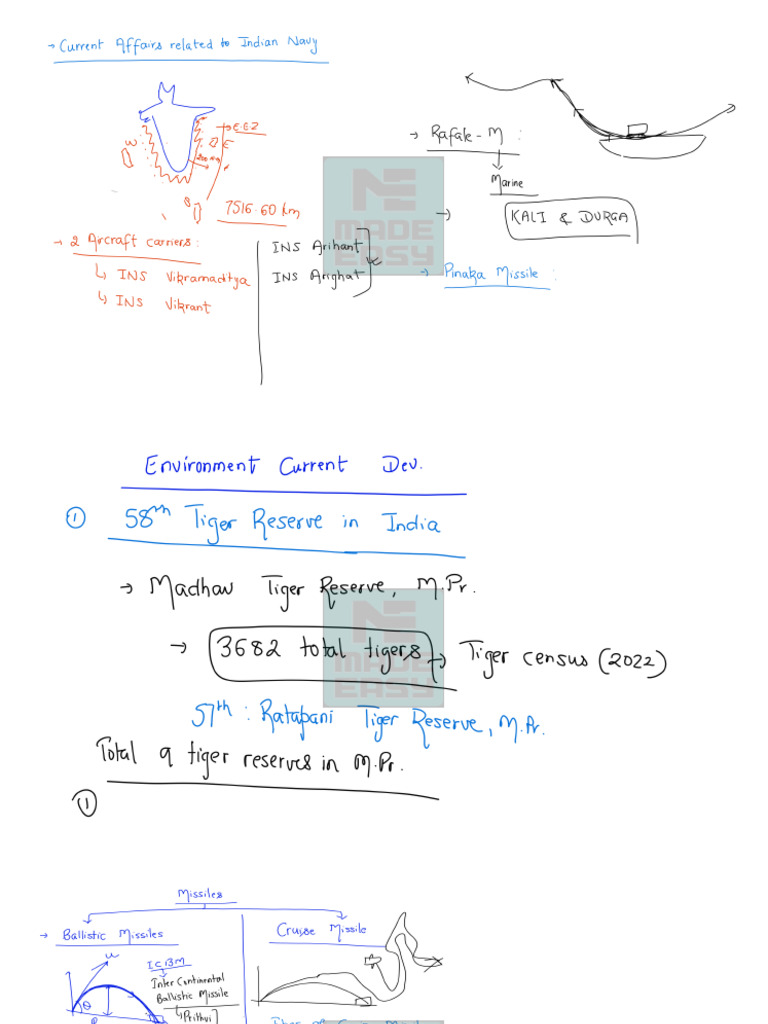 → Current Affairs related to Indian Navy
→ E.E.Z
W
E
S
7516.60 km
→ Rafale-M :
Marine
→ KALI & DURGA
→ 2 Arcraft carriers:
↳ INS Vikramaditya
↳ INS Vikrant
INS Arihant
INS Arighat
→ Pinaka Missile :
MADE
EASY
Environment Current Dev.
① 58th Tiger Reserve in India
→ Madhav Tiger Reserve, M.Pr.
→ 3682 total tigers → Tiger census (2022)
MADE
EASY
57th : Ratapani Tiger Reserve, M.Pr.
Total 9 tiger reserves in M.Pr.
①
Missiles
→ Ballistic Missiles
u
θ
I.C.B.M
Inter Continental
Ballistic Missile
↳ Prithvi
Cruise Missile